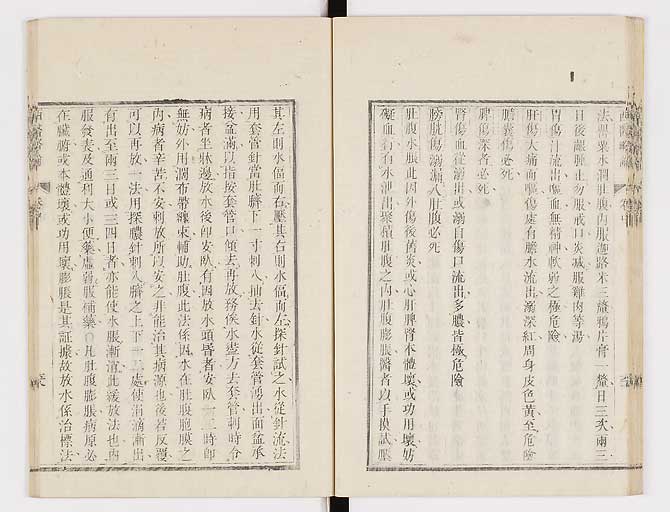 西醫略論
法罌粟水潤肚腹內服迦路米三釐鴉片膏一釐日三次兩三
日後齦腫止勿服戒口炎減服雞肉等湯
胃傷汁流出嘔血無精神軟弱之極危險
肝傷大痛而嘔傷處有膽水流出溺深紅周身皮色黃至危險
膽囊傷必死
脾傷深者必死
腎傷血從溺出或溺自傷口流出多膿皆極危險
膀胱傷溺漏入肚腹必死
肚腹水脹此因外傷後舊炎或心肝脾腎本體壞或功用壞妨
礙血行有水泄出聚積肚腹之內肚腹膨脹醫者以手摸試壓
其左則水偪而右壓其右則水偪而左探針試之水從針流法
用套管針當肚臍下一寸刺入抽去針水從套管湧出面盆承
接盆滿以指按套管口傾去再放務俟水盡方去套管刺時令
病者坐牀邊放水後卽安臥有因放水頭昏者安臥一二時卽
無妨外用濶布帶纏束輔助肚腹此法係因水在肚腹胞膜之
內病者辛苦不安刺放所以安之非能治其病源也後若反覆
可以再放一法用探膿針刺入臍之上下十二處使涓滴漸出
有出至兩三日或三四日者亦能使水脹漸消此緩放法也內
服發表及通利大小便藥虛弱服補藥○凡肚腹膨脹病原必
在臟腑或本體壞或功用壞膨脹是其証據故放水係治標法